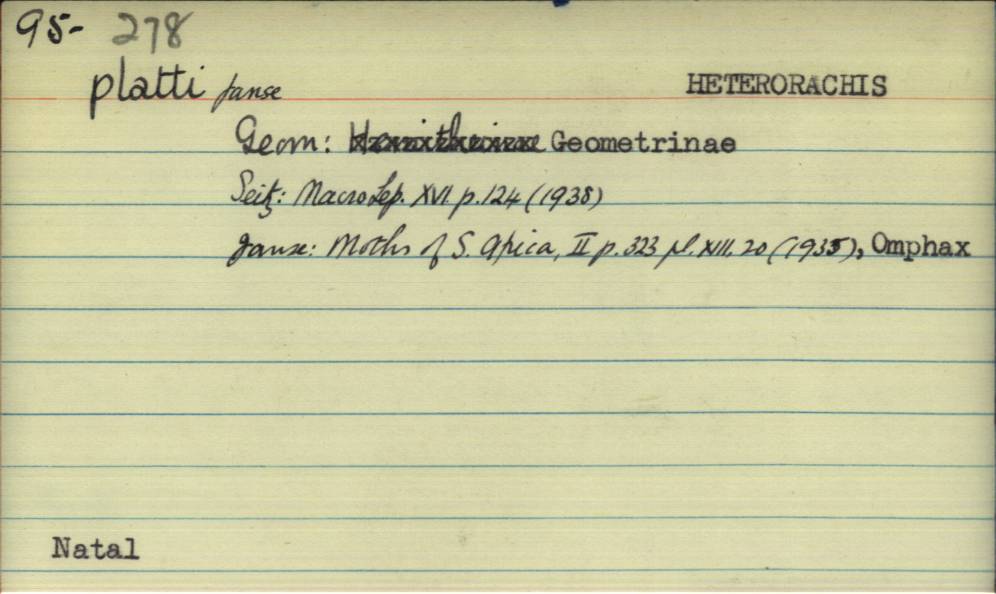 95- 278
platti Janse HETERORACHIS
Geom: Hemitheinae Geometrinae
Seitz: MacroLep. XVI. p. 124 (1938)
Janse: Moths of S. Africa, II p. 323 pl. XIII. 20 (1935), Omphax
Natal